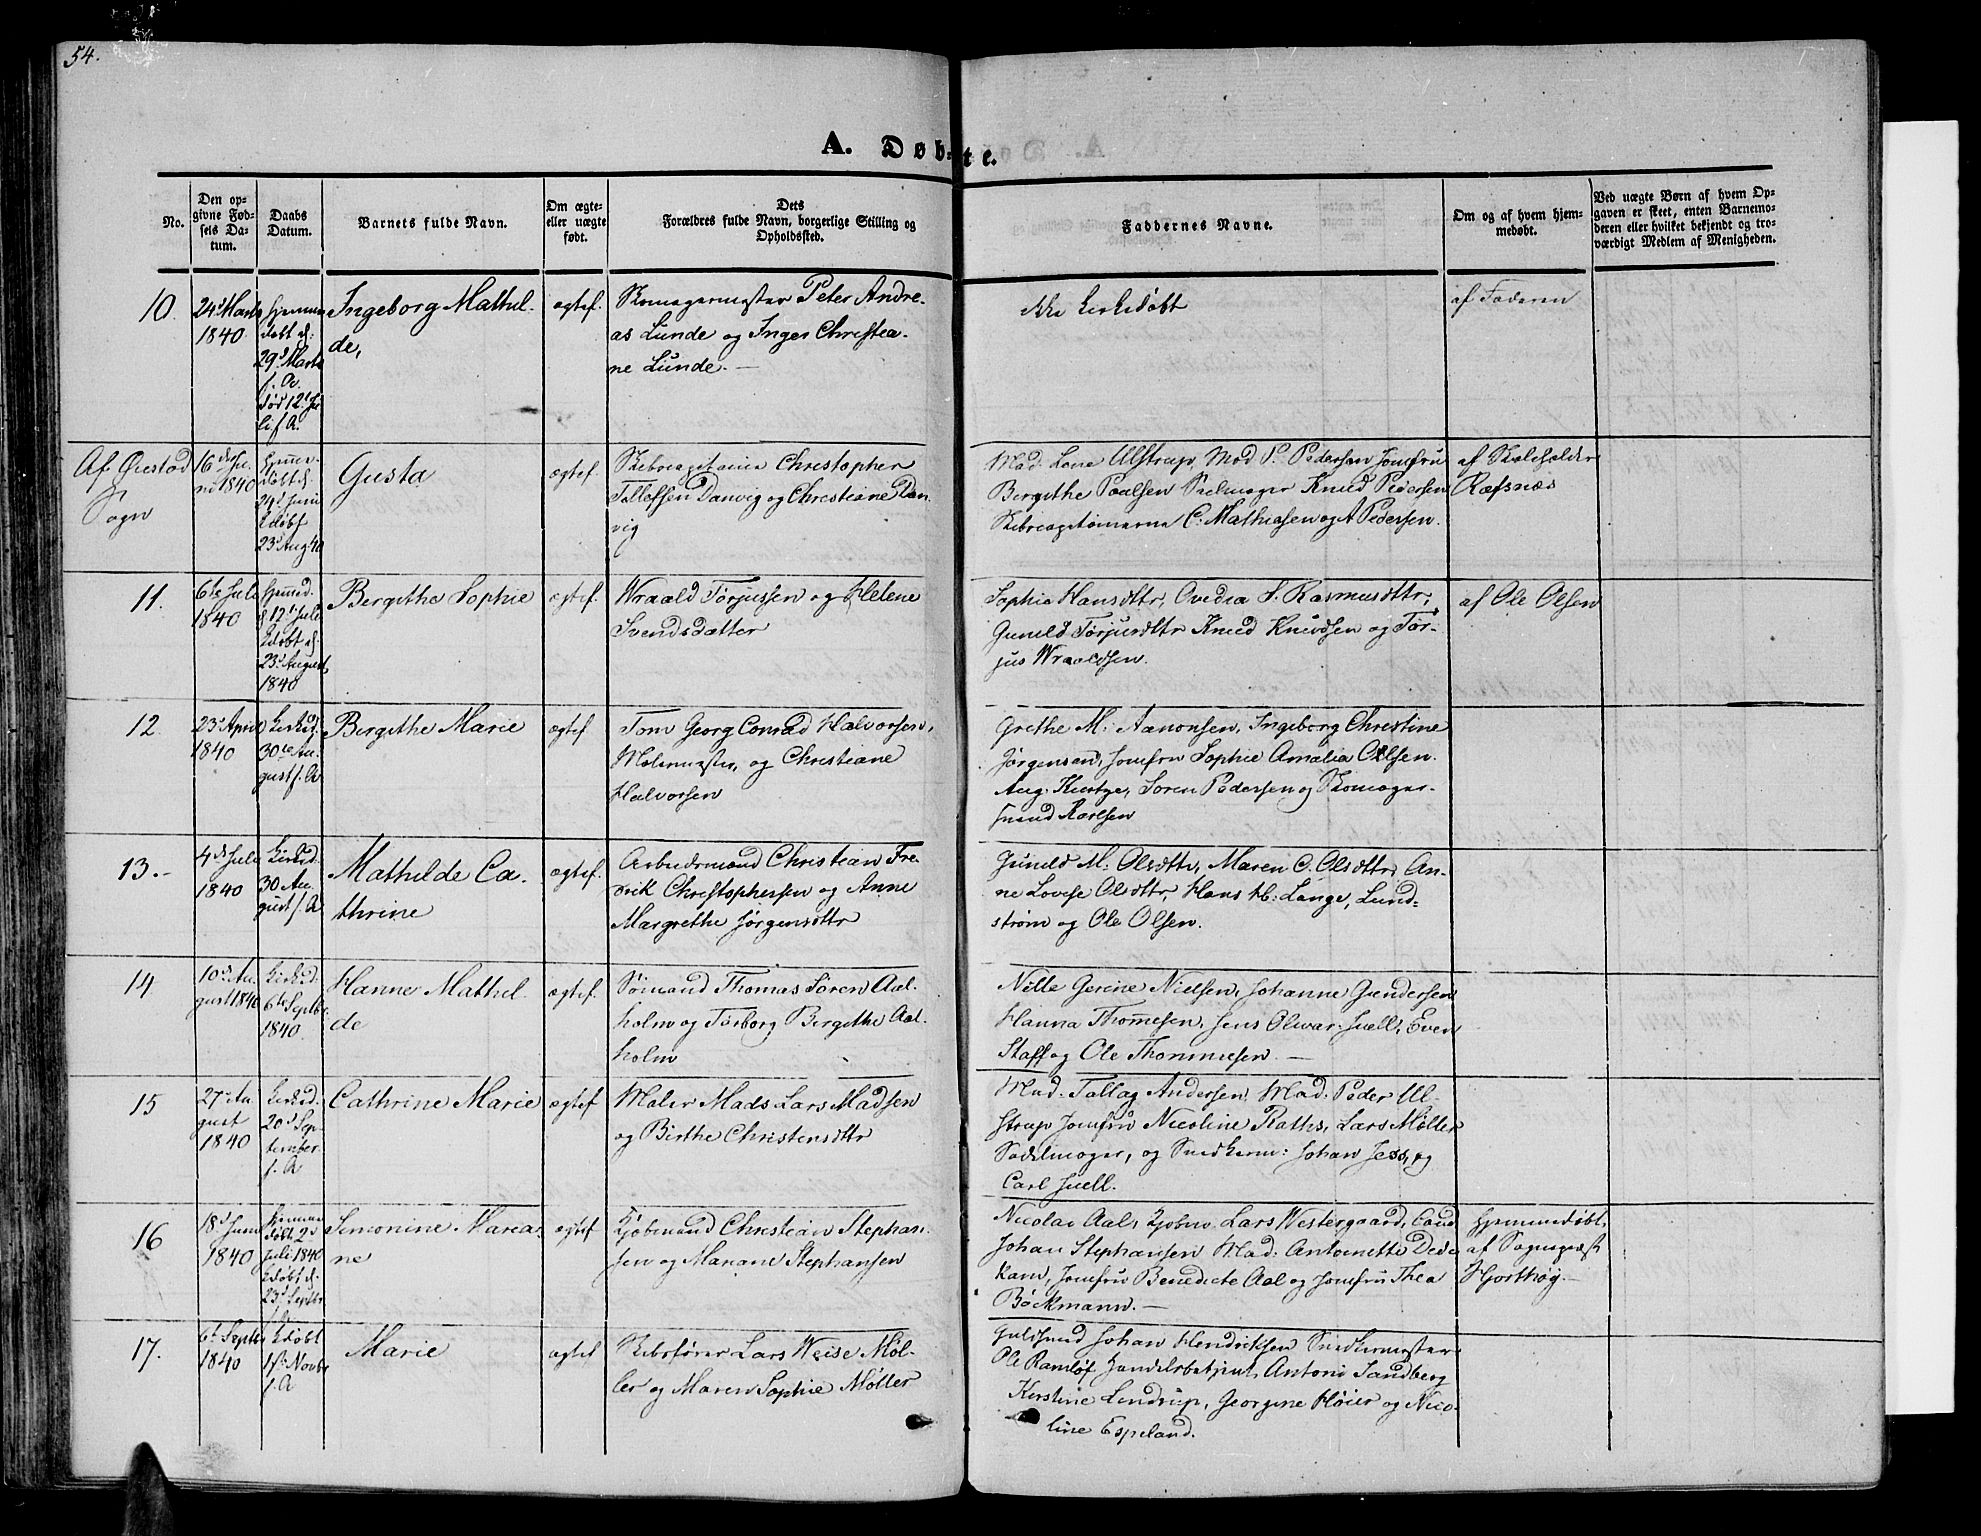 54.
A. Døbte.
No.
Den op-
givne Fød-
sels Da-
tum.
Daabs
Datum.
Barnets fulde Navn.
Om ægte-
eller uægte
født.
Dets
Forældres fulde Navn, borgerlige Stilling og
Opholdssted.
Faddernes Navne.
Om og af hvem hjem-
medøbt.
Ved uægte Børn af hvem Op-
gaven er skeet, enten Barnemo-
deren eller hvilket bekjendt og tro-
værdigt Medlem af Menigheden.
10.
24d Marts
1840.
Hjemme
døbt d:
29d Marts
f. A.
død 12t Ju
li f. A.
Ingeborg Mathil-
de,
ægtef.
Skomagermester Peter Andre-
as Lunde og Inger Christia-
ne Lunde. —
ikke kirkedøbt
af Faderen
Af Øiestad
Sogn
16de Ju-
ni 1840
Hjemme-
døbt d.
24d Juni
Kdøbt
23d Aug 40
Gusta
ægtef.
Skibscapitaine Christopher
Tellefsen Danvig og Christiane Dan
vig
Mad. Lene Ulstrup, Mad P. Pedersen Jomfru
Bergithe Paalsen Seilmager Knud Pedersen
Skibscapitainerne C. Mathiasen og A Pedersen.
af Skoleholder
Ræfsnæs
11.
6te Juli
1840
Hjemmed.
d. 12t Juli
Kdøbt d.
23d August
1840
Bergithe Sophie
ægtef.
Wraald Tørjussen og Helene
Svendsdatter
Sophia Hansdttr, Ovedia S. Rasmusdttr,
Gunild Tørjusdttr Knud Knudsen og Tør-
jus Wraaldsen.
af Ole Olsen
12
23d April
1840
Kirked.
30te Au
gust f. A
Bergithe Marie
ægtef
Tom Georg Conrad Halvorsen,
Malermester, og Christiane
Halvorsen
Grethe M. Aanonsen, Ingeborg Christine
Jørgensen, Jomfru Sophie Amalia Olsen.
Aug. Kurtze, Søren Pedersen og Skomager-
svend Karlsen
13.-
4de Juli
1840
Kirked.
30 Au
gust f. A
Mathilde Ca-
thrine
ægtef.
Arbeidsmand Christian Fre
drik Christophersen og Anne
Margrethe Jørgensdttr
Gunild M. Olsdttr, Maren C. Olsdttr, An-
ne Lovise Olsdttr, Hans H: Lange, Lund-
strøm og Ole Olsen.
14
10de Au.
gust 1840
Kirked.
6te Septbr.
1840
Hanne Mathil-
de
ægtef.
Sømand Thomas Søren Aal.
holm og Tørborg Bergithe Aal.
holm
Nille Gerine Nielsen, Johanne Gundersen
Hanna Thommesen, Jens Olwar Juell, Even
Staff og Ole Thommesen. —
15
27de Au
gust
1840
Kirked.
20d Sep-
tember
f. A
Cathrine Marie
ægtef
Maler Mads Lars Madsen
og Birthe Christensdttr
Mad. Tallag Andersen, Mad. Peder Ul-
strup Jomfru Nicoline Raths, Lars Møller
Sadelmager, og Snedkerm: Johan Jess, og
Carl Juell.
16
18d Juni
1840
Hjemme
døbt 2d
Juli 1840
Kdøbt d.
23d Septbr
f. A
Simonine Maria-
ne
ægtef
Kjøbmand Christian Stephan-
sen og Mariane Stephansen
Nicolai Aal, Kjøbm. Lars Westergaard, Cand
Johan Stephansen Mad: Antoinette Dede
kam, Jomfru Benedicte Aal og Jomfru Thea
Bøckmann. —
Hjemmedøbt
af Sognepræst
Hjorthøg.
17.
6t Septbr
1840
Kdøbt
1ste Novbr
f. A
Marie
ægtef
Skibsfører Lars Weise Møl-
ler og Maren Sophie Møller
Guldsmed Johan Hendriksen Snedkermester
Ole Ramløf Handelsbetjent Antoni Sandberg
Kirstine Lendrup, Georgine Høier og Nico-
line Espeland.